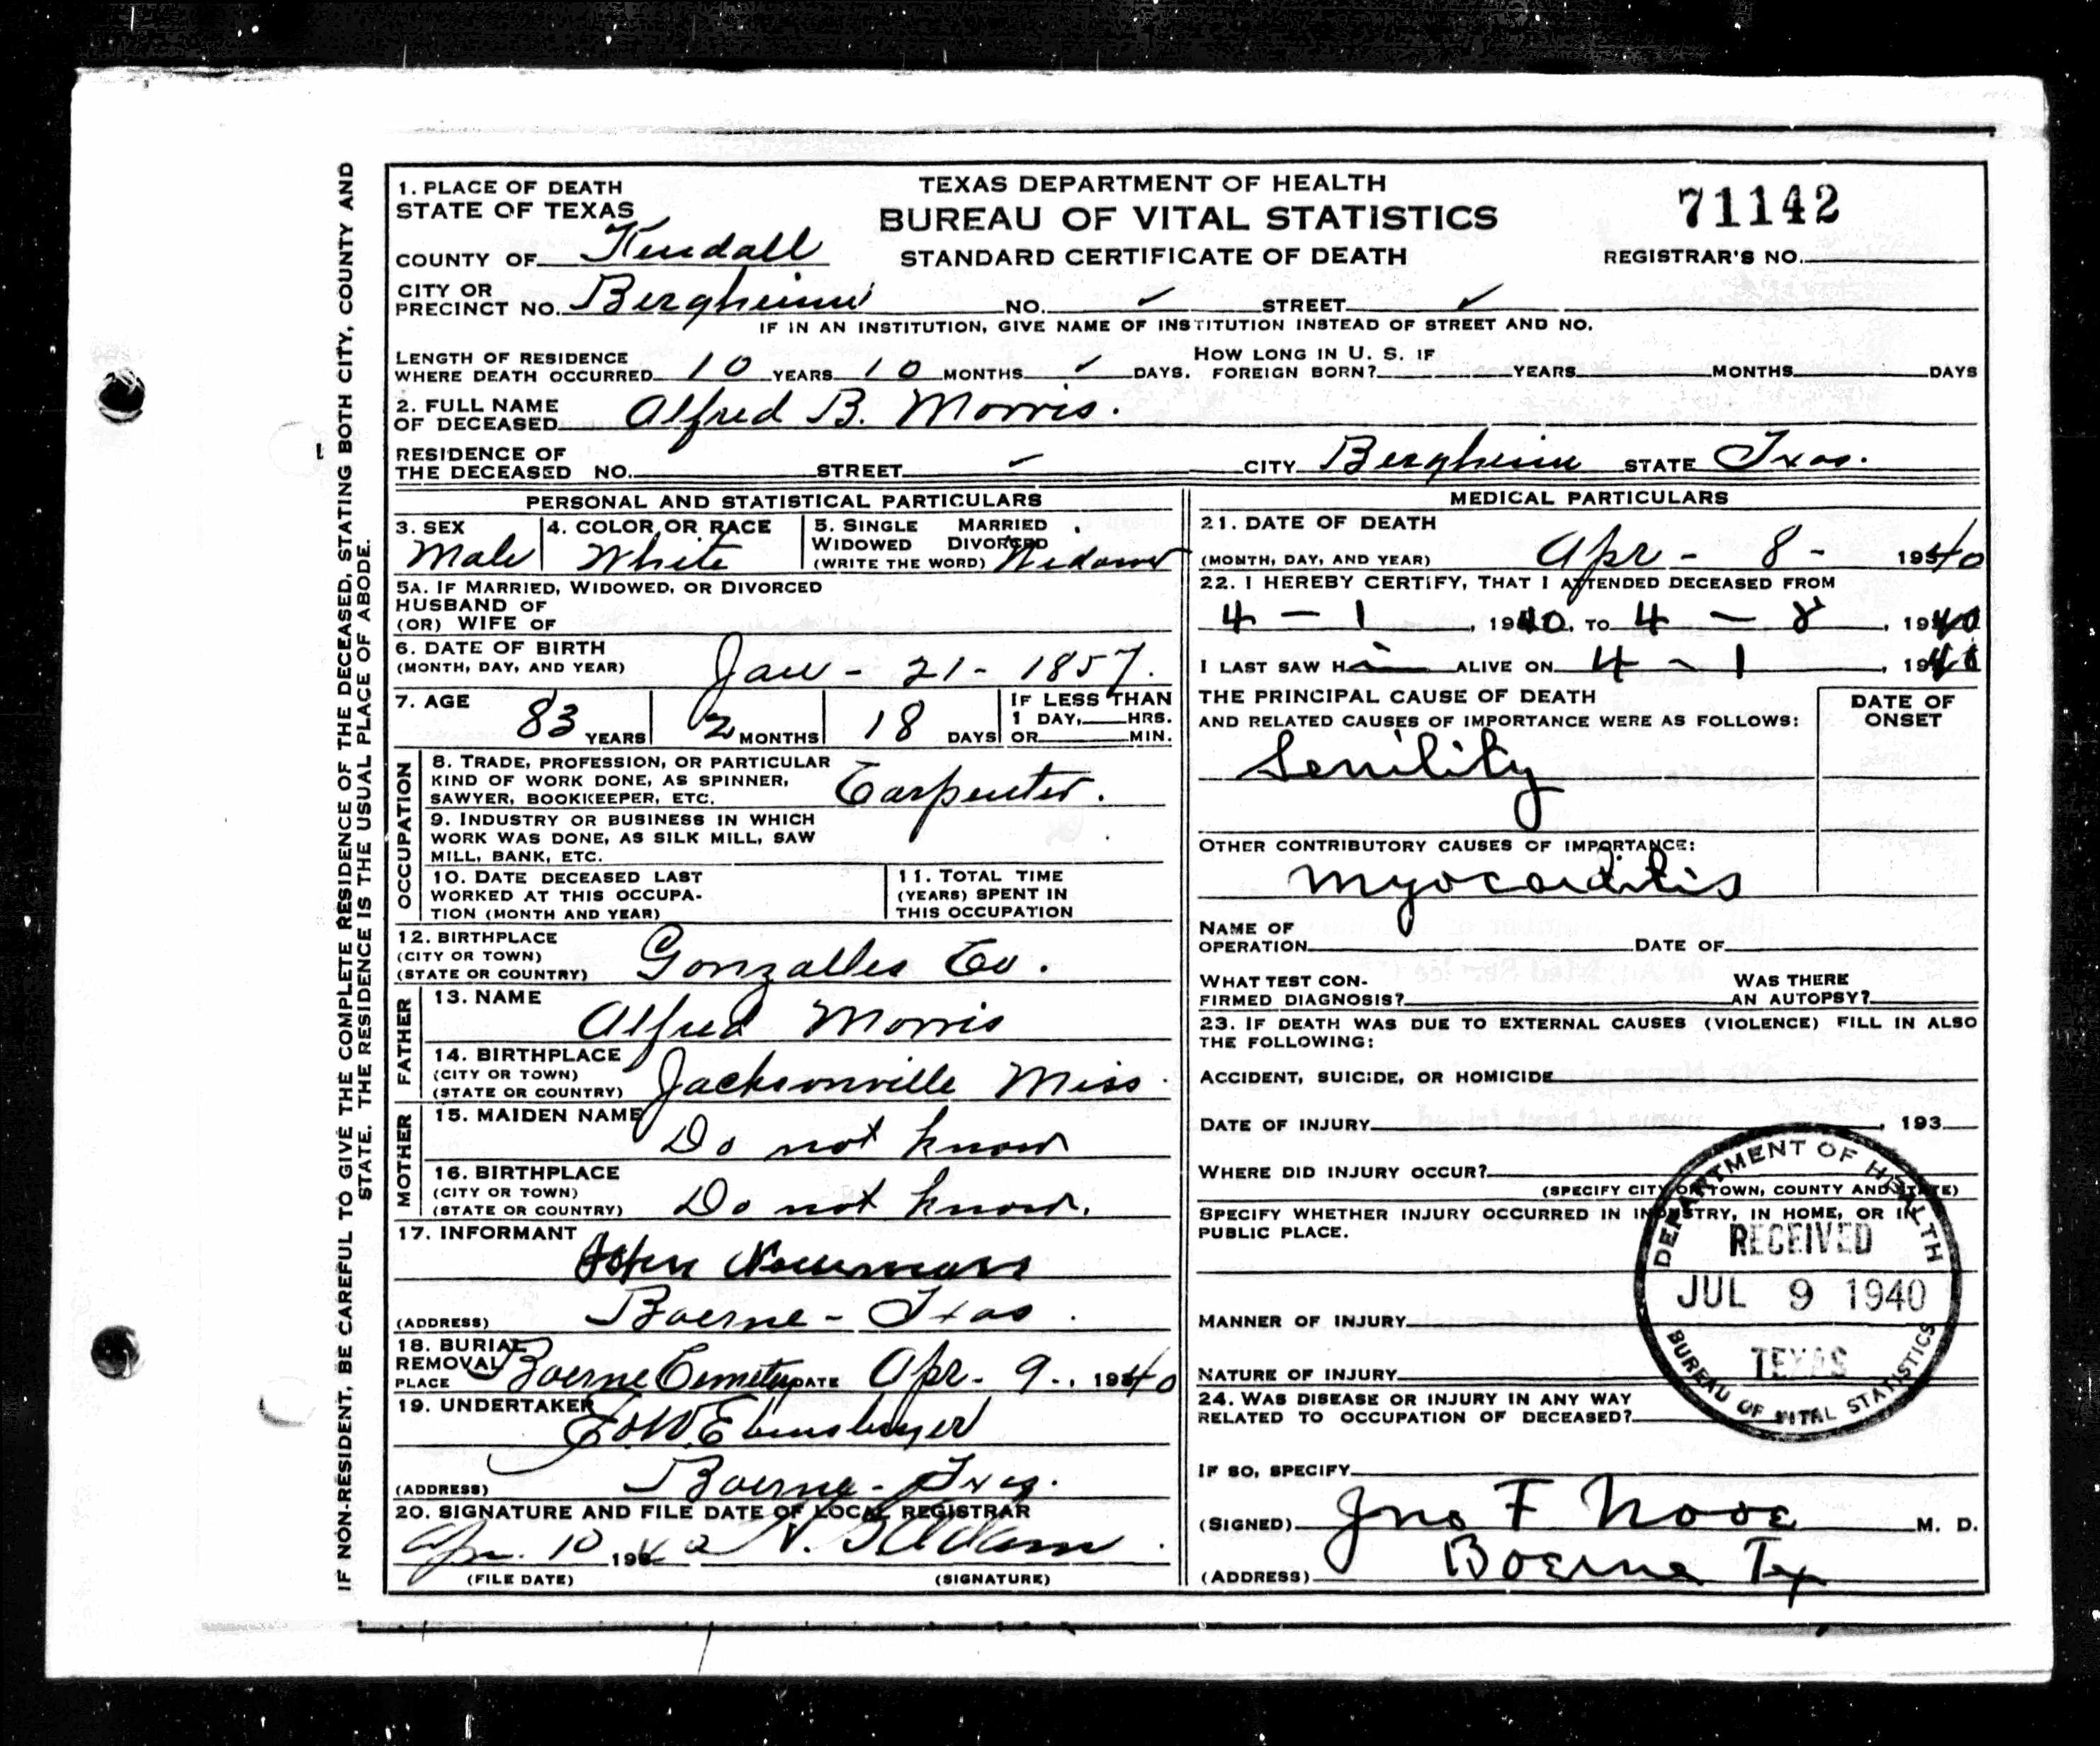 IF NON-RESIDENT, BE CAREFUL TO GIVE THE COMPLETE RESIDENCE OF THE DECEASED, STATING BOTH CITY, COUNTY AND
STATE. THE RESIDENCE IS THE USUAL PLACE OF ABODE.
1. PLACE OF DEATH
STATE OF TEXAS
TEXAS DEPARTMENT OF HEALTH
BUREAU OF VITAL STATISTICS
STANDARD CERTIFICATE OF DEATH
71142
REGISTRAR'S NO.
COUNTY OF Kendall
CITY OR
PRECINCT NO. Bergheim NO. ✓ STREET ✓
IF IN AN INSTITUTION, GIVE NAME OF INSTITUTION INSTEAD OF STREET AND NO.
LENGTH OF RESIDENCE
WHERE DEATH OCCURRED 10 YEARS 10 MONTHS ✓ DAYS.
HOW LONG IN U. S. IF
FOREIGN BORN? YEARS MONTHS DAYS
2. FULL NAME
OF DECEASED Alfred B. Morris.
RESIDENCE OF
THE DECEASED NO. STREET ✓ CITY Bergheim STATE Texas.
PERSONAL AND STATISTICAL PARTICULARS
3. SEX
Male
4. COLOR OR RACE
White
5. SINGLE MARRIED
WIDOWED DIVORCED
(WRITE THE WORD) Widower
5A. IF MARRIED, WIDOWED, OR DIVORCED
HUSBAND OF
(OR) WIFE OF
6. DATE OF BIRTH
(MONTH, DAY, AND YEAR) Jan - 21 - 1857.
7. AGE
83 YEARS 2 MONTHS 18 DAYS
IF LESS THAN
1 DAY, HRS.
OR MIN.
OCCUPATION
8. TRADE, PROFESSION, OR PARTICULAR
KIND OF WORK DONE, AS SPINNER,
SAWYER, BOOKKEEPER, ETC. Carpenter.
9. INDUSTRY OR BUSINESS IN WHICH
WORK WAS DONE, AS SILK MILL, SAW
MILL, BANK, ETC.
10. DATE DECEASED LAST
WORKED AT THIS OCCUPA-
TION (MONTH AND YEAR)
11. TOTAL TIME
(YEARS) SPENT IN
THIS OCCUPATION
12. BIRTHPLACE
(CITY OR TOWN)
(STATE OR COUNTRY) Gonzalles Co.
FATHER
13. NAME
Alfred Morris
14. BIRTHPLACE
(CITY OR TOWN)
(STATE OR COUNTRY) Jacksonville Miss.
MOTHER
15. MAIDEN NAME
Do not know
16. BIRTHPLACE
(CITY OR TOWN)
(STATE OR COUNTRY) Do not know.
17. INFORMANT
John
(ADDRESS) Boerne - Texas.
18. BURIAL
REMOVAL
PLACE Boerne Cemetery DATE Apr. 9 -, 1940
19. UNDERTAKER
(ADDRESS) Boerne - Texas.
20. SIGNATURE AND FILE DATE OF LOCAL REGISTRAR
Apr. 10 1940
(FILE DATE) (SIGNATURE)
MEDICAL PARTICULARS
21. DATE OF DEATH
(MONTH, DAY, AND YEAR) Apr - 8 - 1940
22. I HEREBY CERTIFY, THAT I ATTENDED DECEASED FROM
4 - 1, 1940, TO 4 - 8, 1940
I LAST SAW H ALIVE ON 4 - 1, 1940
THE PRINCIPAL CAUSE OF DEATH
AND RELATED CAUSES OF IMPORTANCE WERE AS FOLLOWS:
DATE OF
ONSET
Senility
OTHER CONTRIBUTORY CAUSES OF IMPORTANCE:
Myocarditis
NAME OF
OPERATION DATE OF
WHAT TEST CON-
FIRMED DIAGNOSIS?
WAS THERE
AN AUTOPSY?
23. IF DEATH WAS DUE TO EXTERNAL CAUSES (VIOLENCE) FILL IN ALSO
THE FOLLOWING:
ACCIDENT, SUICIDE, OR HOMICIDE
DATE OF INJURY , 193
WHERE DID INJURY OCCUR?
(SPECIFY CITY OR TOWN, COUNTY AND STATE)
SPECIFY WHETHER INJURY OCCURRED IN INDUSTRY, IN HOME, OR IN
PUBLIC PLACE.
MANNER OF INJURY
NATURE OF INJURY
DEPARTMENT OF HEALTH
RECEIVED
JUL 9 1940
TEXAS
BUREAU OF VITAL STATISTICS
24. WAS DISEASE OR INJURY IN ANY WAY
RELATED TO OCCUPATION OF DECEASED?
IF SO, SPECIFY
(SIGNED) Jno F Nooe M. D.
(ADDRESS) Boerne Tex